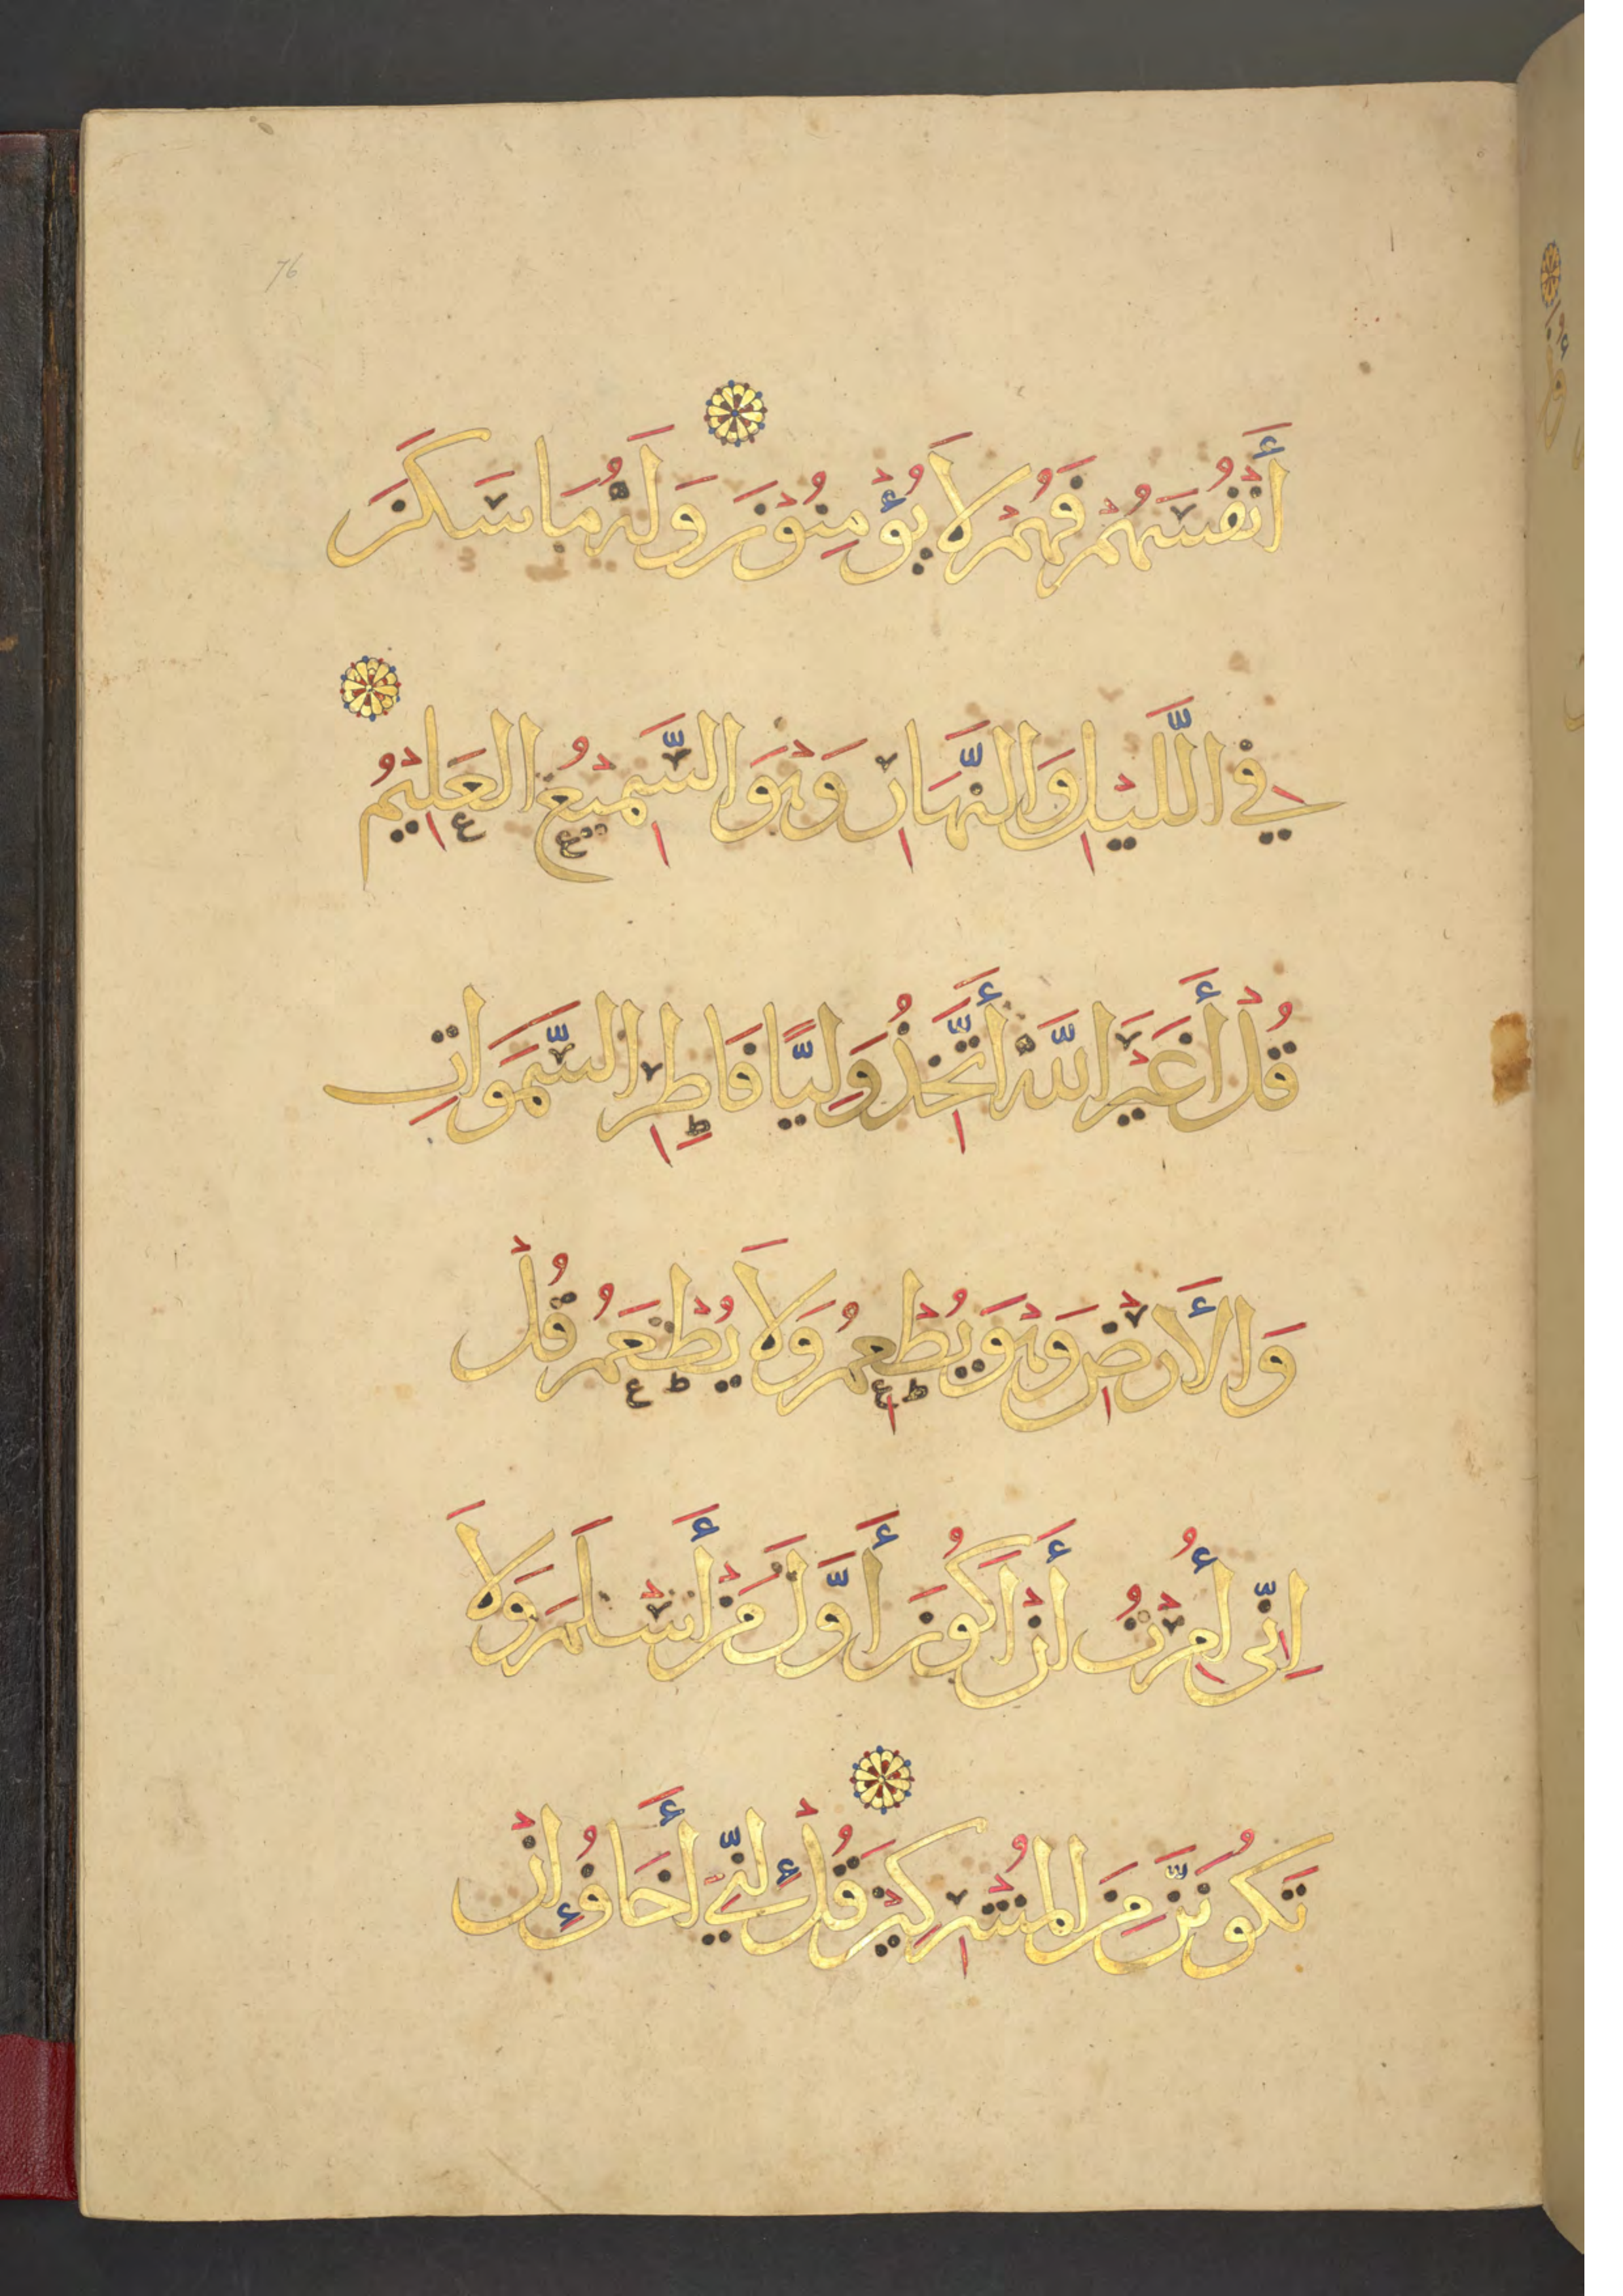 76
أَنْفُسَهُمْ فَهُمْ لَا يُؤْمِنُوْنَ وَلَهُ مَا سَكَنَ
فِي اللَّيْلِ وَالنَّهَارِ وَهْوَ السَّمِيْعُ العَلِيْمُ
قُلْ أَغَيْرَ اللَّهِ أَتَّخِذُ وَلِيًّا فَاطِرِ السَّمَوَاتِ
وَالأَرْضِ وَهْوَ يُطْعِمُ وَلَا يُطْعَمُ قُلْ
اِنِّى أُمِرْتُ أَنْ اَكُوْنَ أَوَّلَ مَنْ أَسْلَمَ وَلَا
تَكُوْنَنَّ مِنَ المُشْرِكِيْنَ قُلْ اِنِّي أَخَافُ اِنْ